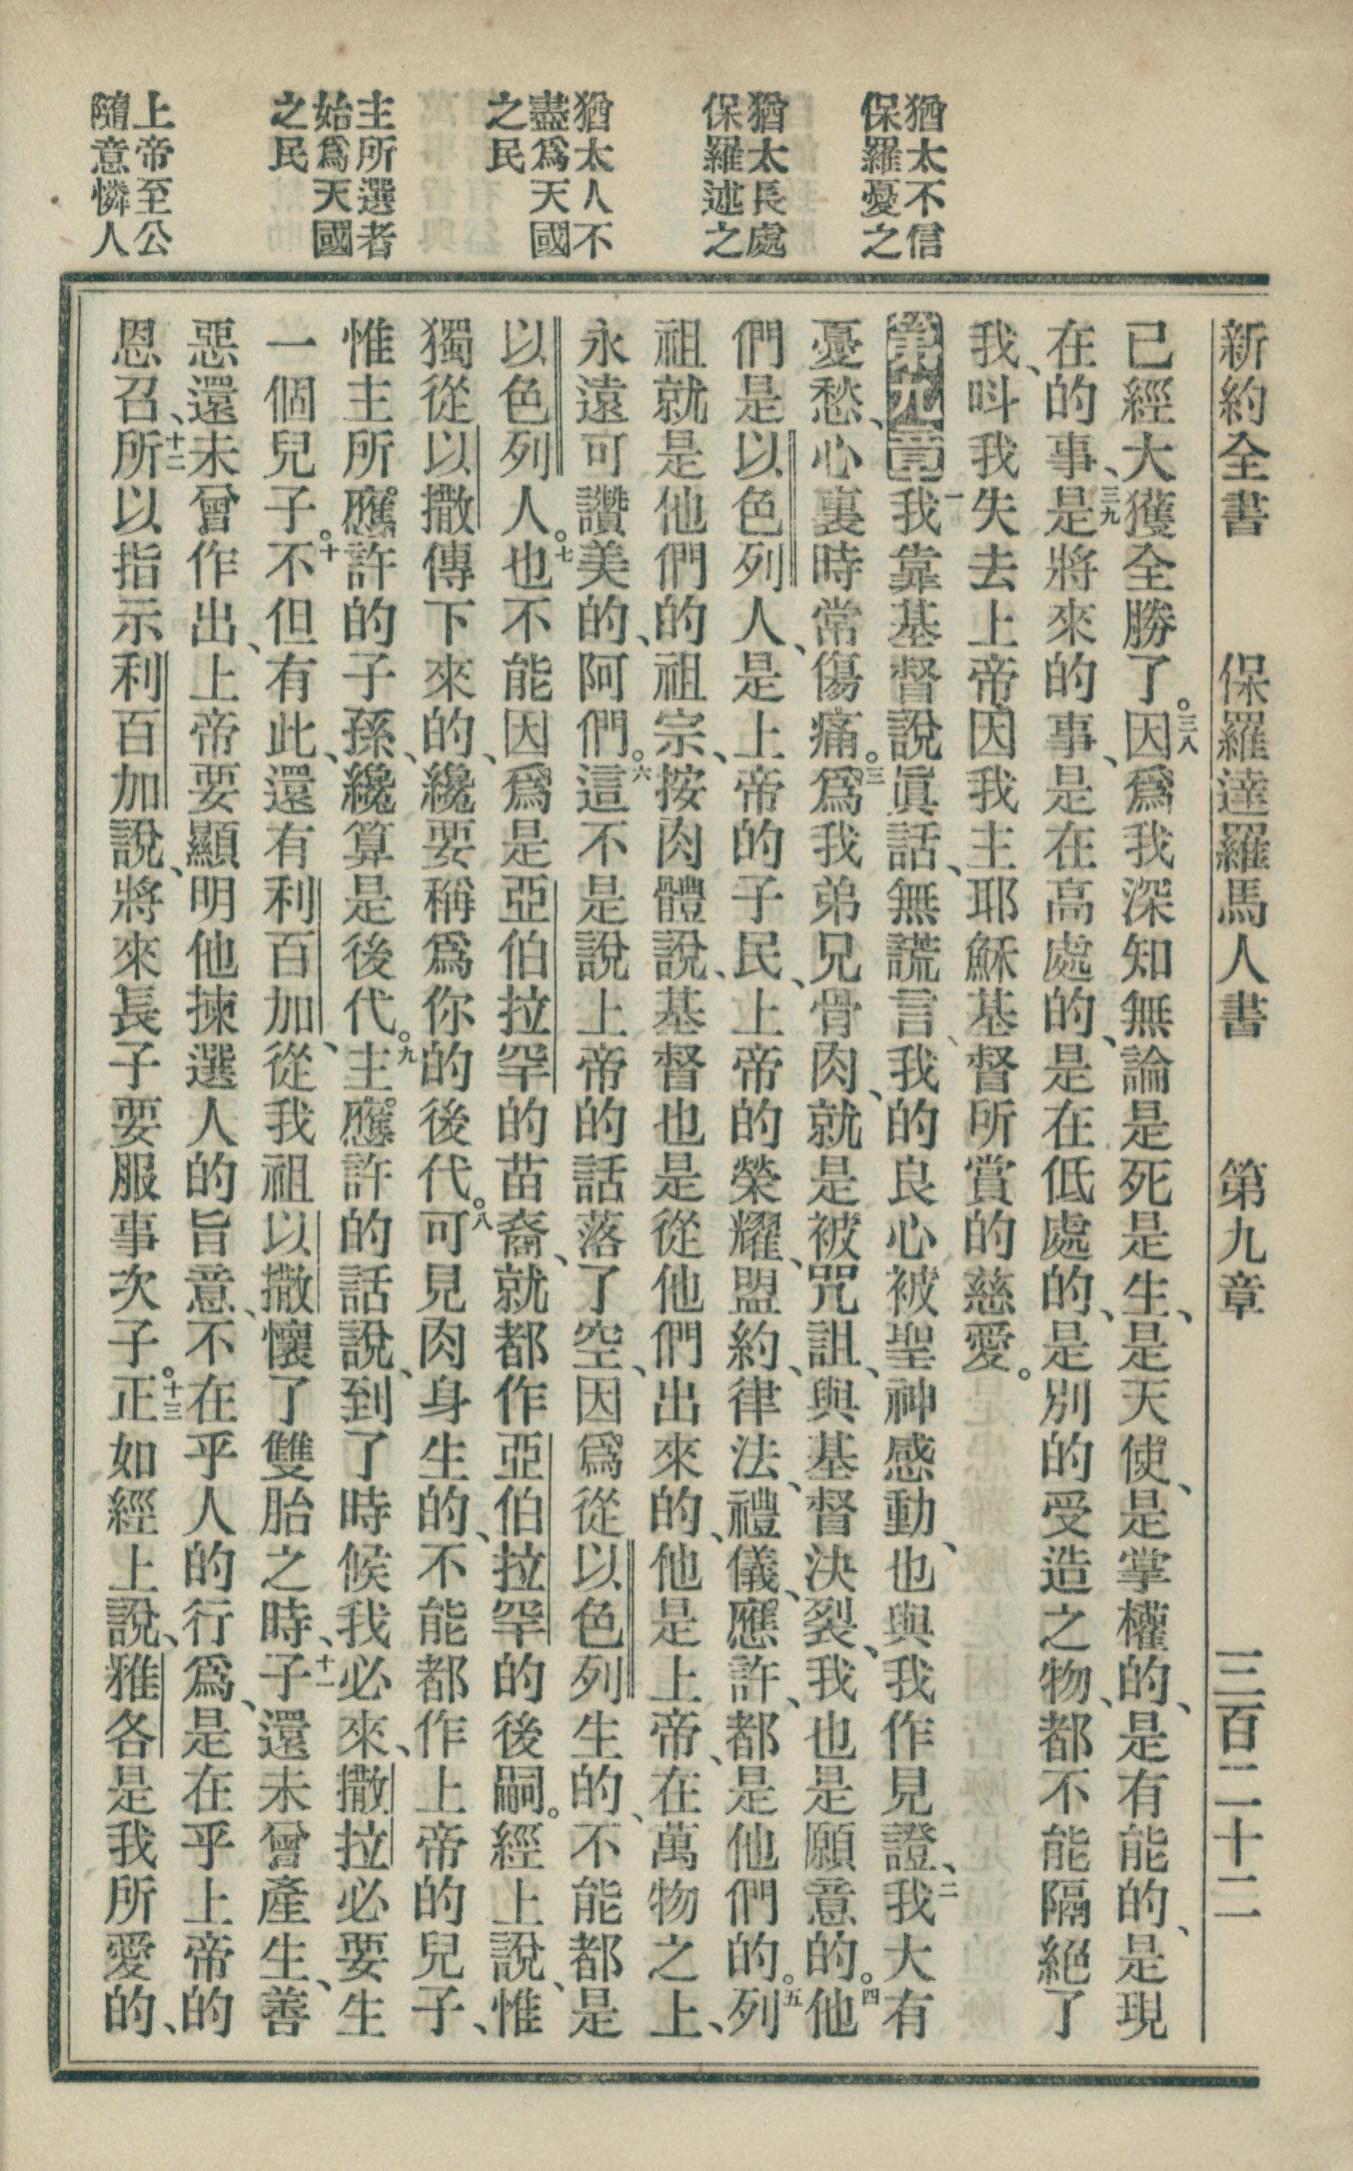 新約全書　保羅達羅馬人書　第九章　三百二十二
猶太不信
保羅憂之
猶太長處
保羅述之
猶太人不
盡爲天國
之民
主所選者
始爲天國
之民
上帝至公
隨意憐人
已經大獲全勝了。三八因爲我深知無論是死是生、是天使、是掌權的、是有能的、是現
在的事、三九是將來的事、是在高處的、是在低處的、是別的受造之物、都不能隔絕了
我、呌我失去上帝因我主耶穌基督所賞的慈愛。
第九章一我靠基督說眞話、無謊言、我的良心被聖神感動、也與我作見證、二我大有
憂愁、心裏時常傷痛。三爲我弟兄骨肉、就是被咒詛、與基督決裂、我也是願意的。四他
們是以色列人、是上帝的子民、上帝的榮耀、盟約、律法、禮儀、應許、都是他們的。五列
祖就是他們的祖宗、按肉體說、基督也是從他們出來的、他是上帝、在萬物之上、
永遠可讚美的、阿們。六這不是說上帝的話落了空、因爲從以色列生的、不能都是
以色列人。七也不能因爲是亞伯拉罕的苗裔、就都作亞伯拉罕的後嗣。經上說、惟
獨從以撒傳下來的、纔要稱爲你的後代。八可見肉身生的、不能都作上帝的兒子、
惟主所應許的子孫、纔算是後代。九主應許的話說、到了時候我必來、撒拉必要生
一個兒子。十不但有此、還有利百加、從我祖以撒懷了雙胎之時、十一子還未曾產生、善
惡還未曾作出、上帝要顯明他揀選人的旨意、不在乎人的行爲、是在乎上帝的
恩召、十二所以指示利百加說、將來長子要服事次子。十三正如經上說、雅各是我所愛的、